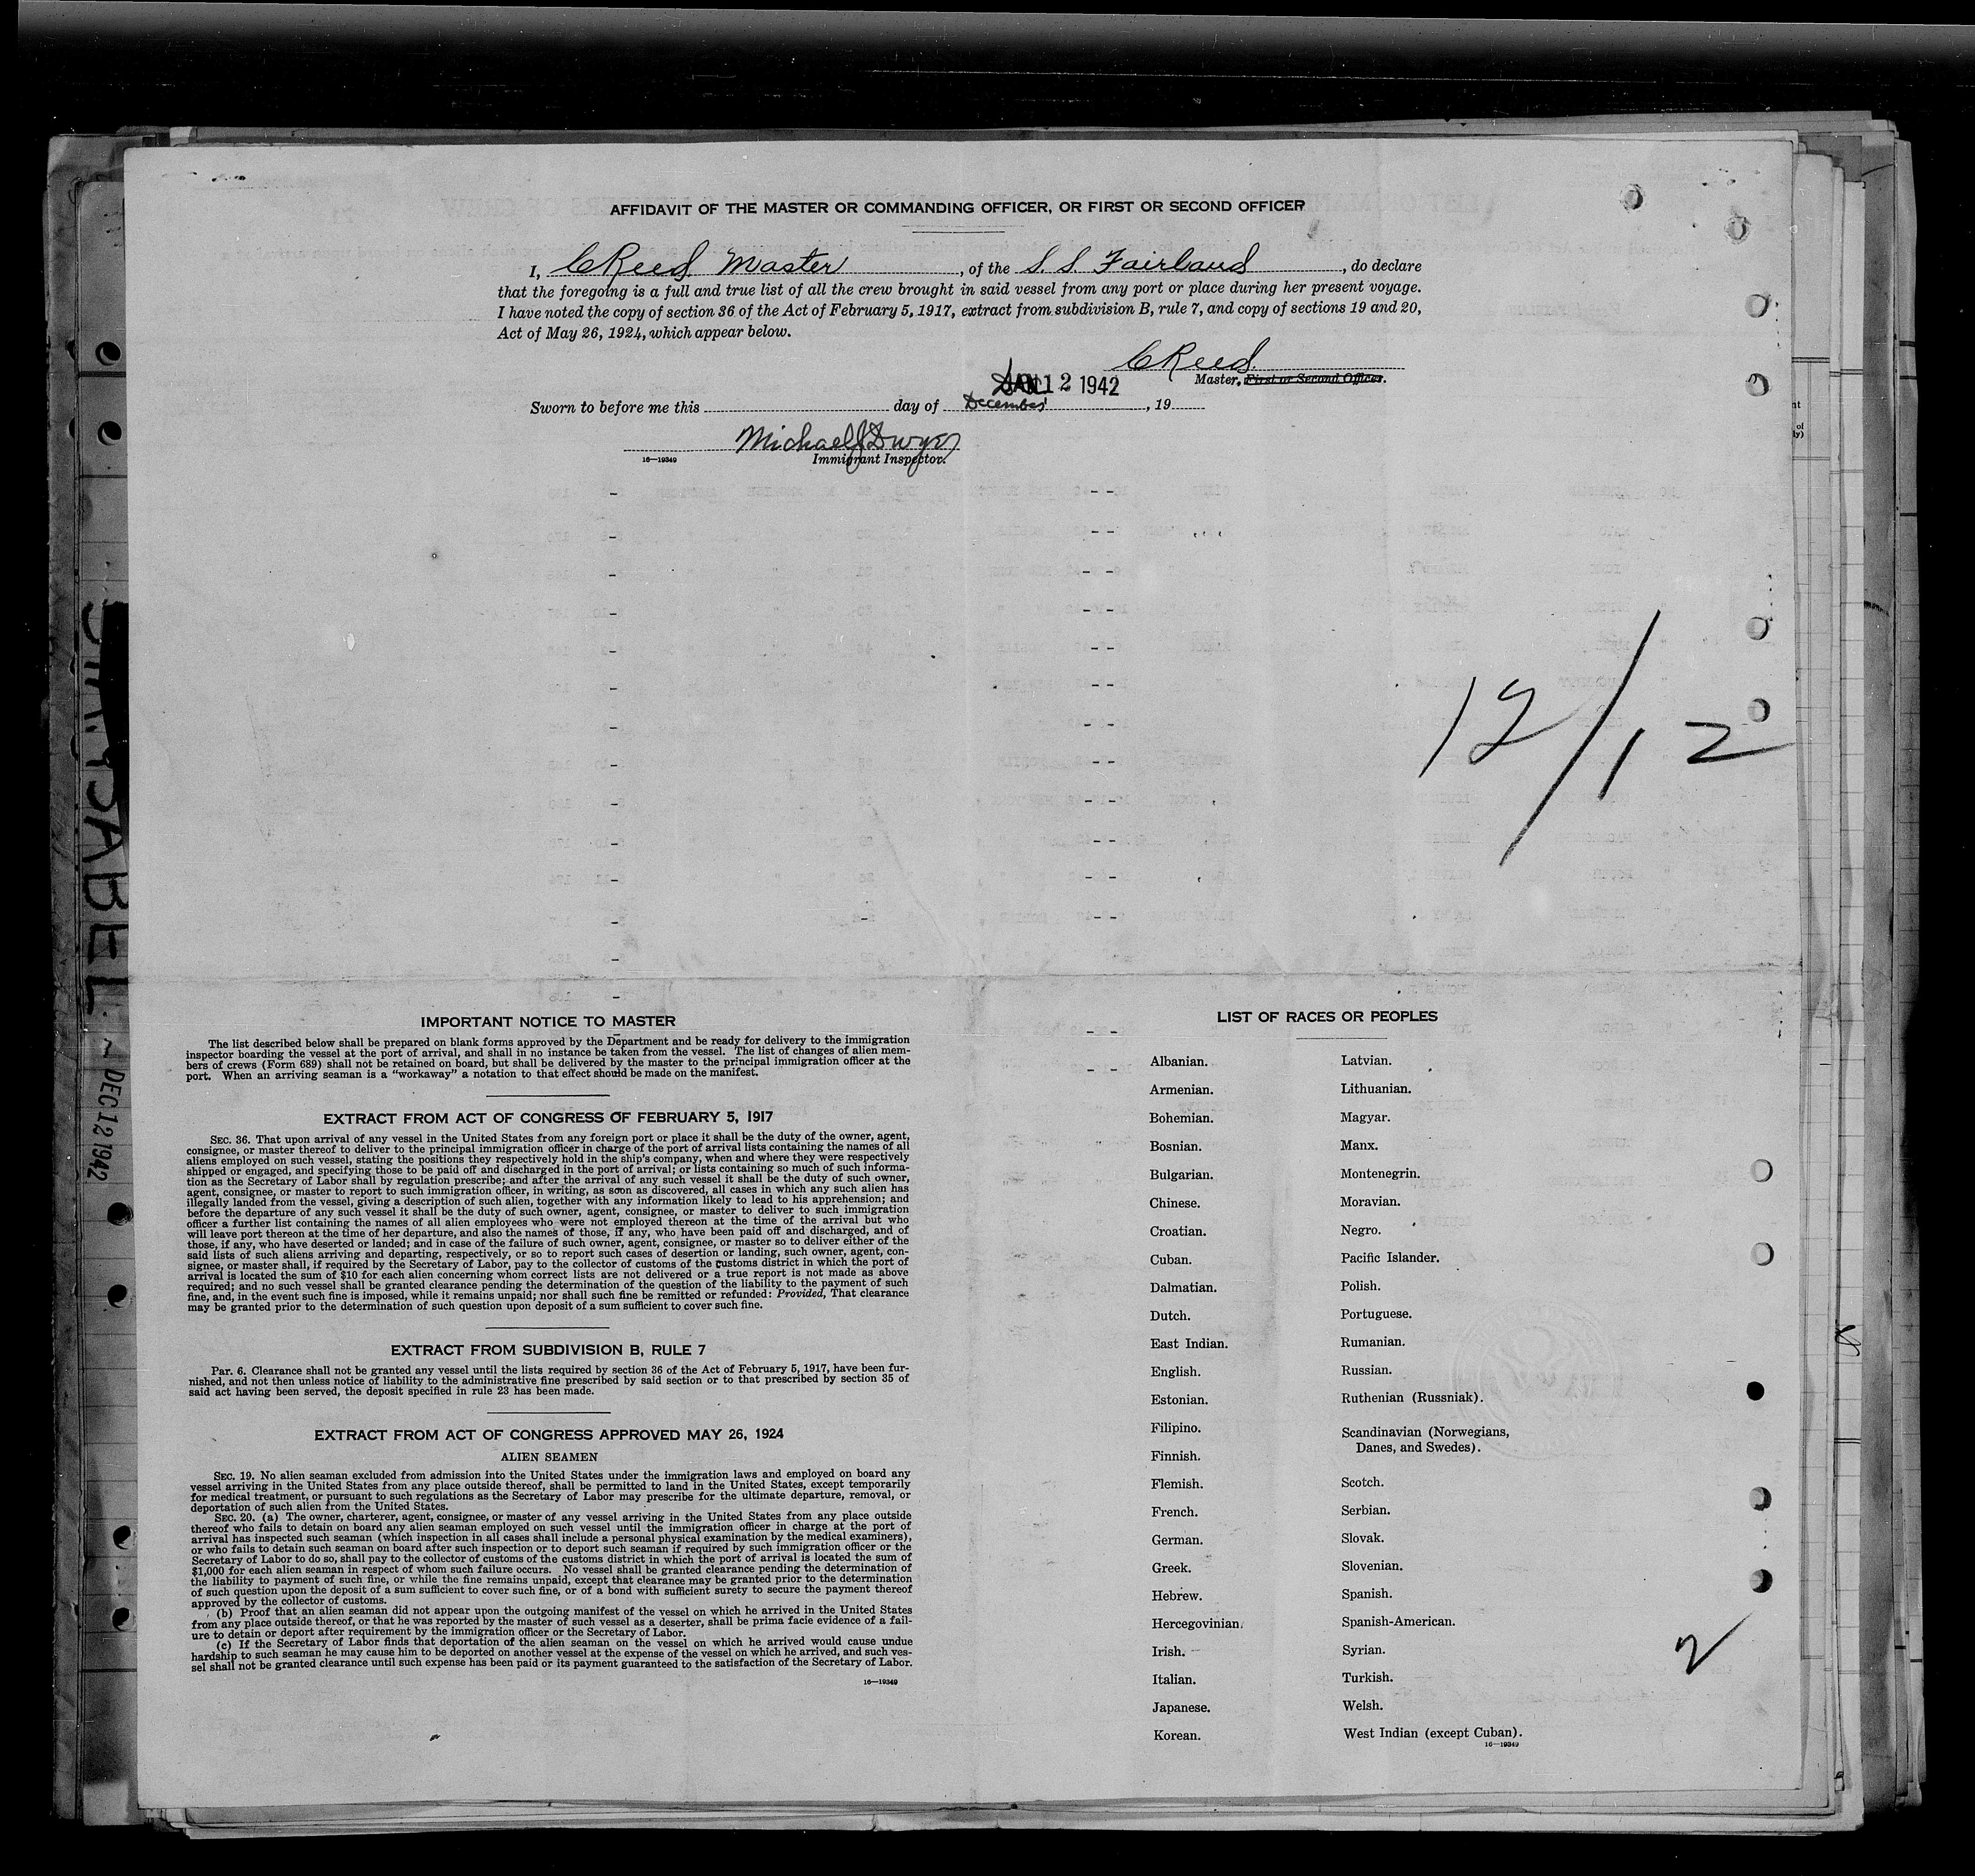 AFFIDAVIT OF THE MASTER OR COMMANDING OFFICER, OR FIRST OR SECOND OFFICER
I, C Reed Master, of the S. S. Fairland, do declare
that the foregoing is a full and true list of all the crew brought in said vessel from any port or place during her present voyage.
I have noted the copy of section 36 of the Act of February 5, 1917, extract from subdivision B, rule 7, and copy of sections 19 and 20,
Act of May 26, 1924, which appear below.
C Reed.
Master, First or Second Officer.
12 1942
Sworn to before me this day of December, 19
Michael J Dwyer
16—19349 Immigrant Inspector.
12/12
IMPORTANT NOTICE TO MASTER
The list described below shall be prepared on blank forms approved by the Department and be ready for delivery to the immigration
inspector boarding the vessel at the port of arrival, and shall in no instance be taken from the vessel. The list of changes of alien mem-
bers of crews (Form 689) shall not be retained on board, but shall be delivered by the master to the principal immigration officer at the
port. When an arriving seaman is a "workaway" a notation to that effect should be made on the manifest.
EXTRACT FROM ACT OF CONGRESS OF FEBRUARY 5, 1917
SEC. 36. That upon arrival of any vessel in the United States from any foreign port or place it shall be the duty of the owner, agent,
consignee, or master thereof to deliver to the principal immigration officer in charge of the port of arrival lists containing the names of all
aliens employed on such vessel, stating the positions they respectively hold in the ship's company, when and where they were respectively
shipped or engaged, and specifying those to be paid off and discharged in the port of arrival; or lists containing so much of such informa-
tion as the Secretary of Labor shall by regulation prescribe; and after the arrival of any such vessel it shall be the duty of such owner,
agent, consignee, or master to report to such immigration officer, in writing, as soon as discovered, all cases in which any such alien has
illegally landed from the vessel, giving a description of such alien, together with any information likely to lead to his apprehension; and
before the departure of any such vessel it shall be the duty of such owner, agent, consignee, or master to deliver to such immigration
officer a further list containing the names of all alien employees who were not employed thereon at the time of the arrival but who
will leave port thereon at the time of her departure, and also the names of those, if any, who have been paid off and discharged, and of
those, if any, who have deserted or landed; and in case of the failure of such owner, agent, consignee, or master so to deliver either of the
said lists of such aliens arriving and departing, respectively, or so to report such cases of desertion or landing, such owner, agent, con-
signee, or master shall, if required by the Secretary of Labor, pay to the collector of customs of the customs district in which the port of
arrival is located the sum of $10 for each alien concerning whom correct lists are not delivered or a true report is not made as above
required; and no such vessel shall be granted clearance pending the determination of the question of the liability to the payment of such
fine, and, in the event such fine is imposed, while it remains unpaid; nor shall such fine be remitted or refunded: Provided, That clearance
may be granted prior to the determination of such question upon deposit of a sum sufficient to cover such fine.
EXTRACT FROM SUBDIVISION B, RULE 7
Par. 6. Clearance shall not be granted any vessel until the lists required by section 36 of the Act of February 5, 1917, have been fur-
nished, and not then unless notice of liability to the administrative fine prescribed by said section or to that prescribed by section 35 of
said act having been served, the deposit specified in rule 23 has been made.
EXTRACT FROM ACT OF CONGRESS APPROVED MAY 26, 1924
ALIEN SEAMEN
SEC. 19. No alien seaman excluded from admission into the United States under the immigration laws and employed on board any
vessel arriving in the United States from any place outside thereof, shall be permitted to land in the United States, except temporarily
for medical treatment, or pursuant to such regulations as the Secretary of Labor may prescribe for the ultimate departure, removal, or
deportation of such alien from the United States.
SEC. 20. (a) The owner, charterer, agent, consignee, or master of any vessel arriving in the United States from any place outside
thereof who fails to detain on board any alien seaman employed on such vessel until the immigration officer in charge at the port of
arrival has inspected such seaman (which inspection in all cases shall include a personal physical examination by the medical examiners),
or who fails to detain such seaman on board after such inspection or to deport such seaman if required by such immigration officer or the
Secretary of Labor to do so, shall pay to the collector of customs of the customs district in which the port of arrival is located the sum of
$1,000 for each alien seaman in respect of whom such failure occurs. No vessel shall be granted clearance pending the determination of
the liability to payment of such fine, or while the fine remains unpaid, except that clearance may be granted prior to the determination
of such question upon the deposit of a sum sufficient to cover such fine, or of a bond with sufficient surety to secure the payment thereof
approved by the collector of customs.
(b) Proof that an alien seaman did not appear upon the outgoing manifest of the vessel on which he arrived in the United States
from any place outside thereof, or that he was reported by the master of such vessel as a deserter, shall be prima facie evidence of a fail-
ure to detain or deport after requirement by the immigration officer or the Secretary of Labor.
(c) If the Secretary of Labor finds that deportation of the alien seaman on the vessel on which he arrived would cause undue
hardship to such seaman he may cause him to be deported on another vessel at the expense of the vessel on which he arrived, and such ves-
sel shall not be granted clearance until such expense has been paid or its payment guaranteed to the satisfaction of the Secretary of Labor.
16—19349
LIST OF RACES OR PEOPLES
Albanian.
Armenian.
Bohemian.
Bosnian.
Bulgarian.
Chinese.
Croatian.
Cuban.
Dalmatian.
Dutch.
East Indian.
English.
Estonian.
Filipino.
Finnish.
Flemish.
French.
German.
Greek.
Hebrew.
Hercegovinian.
Irish.
Italian.
Japanese.
Korean.
Latvian.
Lithuanian.
Magyar.
Manx.
Montenegrin.
Moravian.
Negro.
Pacific Islander.
Polish.
Portuguese.
Rumanian.
Russian.
Ruthenian (Russniak).
Scandinavian (Norwegians,
Danes, and Swedes).
Scotch.
Serbian.
Slovak.
Slovenian.
Spanish.
Spanish-American.
Syrian.
Turkish.
Welsh.
West Indian (except Cuban).
16—19349
2
DEC 12 1942